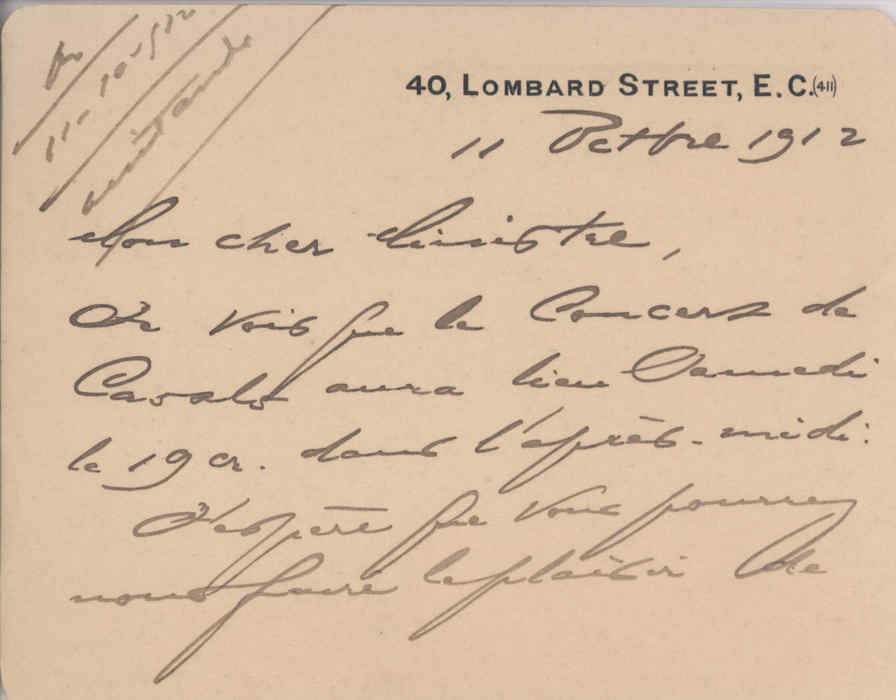 11-10-912
40, LOMBARD STREET, E.C.(411)
11 Octbre 1912
Mon cher Ministre,
Je vois que le Concert de
Casals aura lieu Samedi
le 19 cr. dans l'après-midi.
J'espère que vous pourrez
nous faire le plaisir de